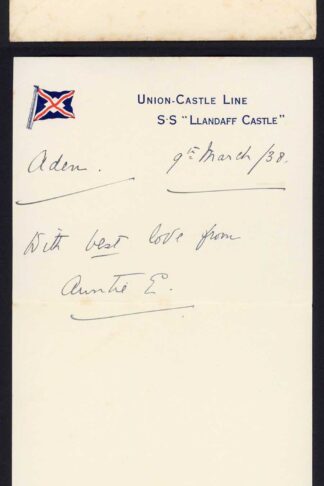 UNION-CASTLE LINE
S·S "LLANDAFF CASTLE"
Aden. 9th March /38.
With best love from
Auntie E.